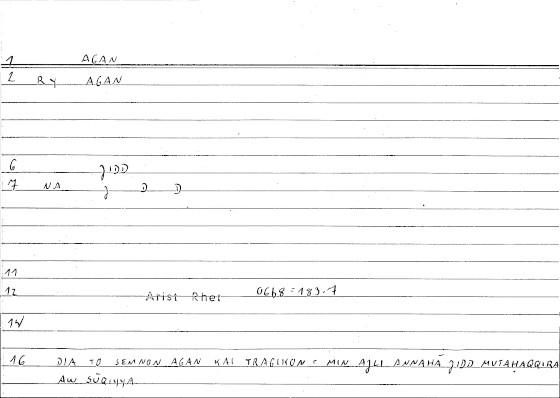 1 AGAN
2 Ry AGAN
6 ǦIDD
7 NA ǧ D D
11
12 Arist Rhet 0668 = 183.7
14
16 DIA TO SEMNON AGAN KAI TRAGIKON = MIN AǦLI ANNAHĀ ǦIDD MUTAḤAQQIRA
AW SŪQIYYA.